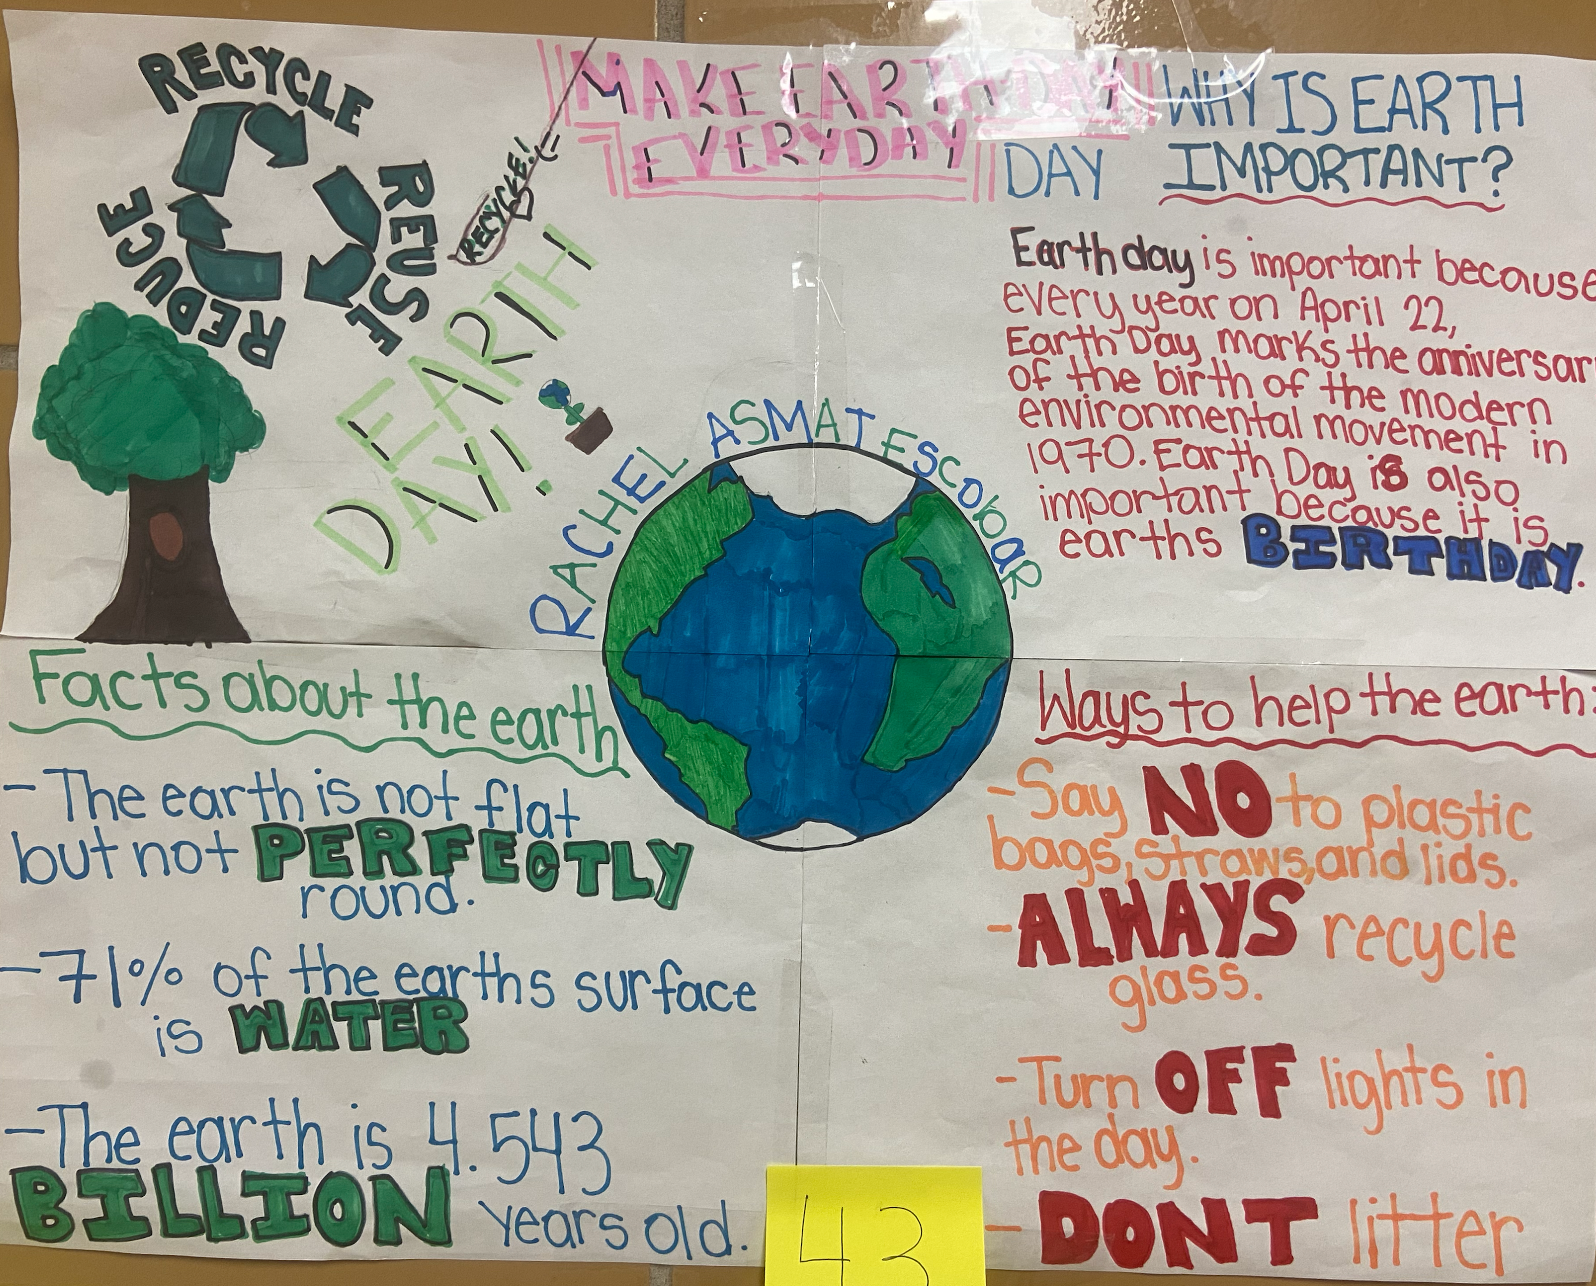 RECYCLE
REUSE
REDUCE
RECYCLE!
MAKE EARTH DAY
EVERYDAY
EARTH
DAY!
RACHEL ASMAT ESCobaR
WHY IS EARTH
DAY IMPORTANT?
Earth day is important because
every year on April 22,
Earth Day marks the anniversar
of the birth of the modern
environmental movement in
1970. Earth Day is also
important because it is
earths BIRTHDAY.
Facts about the earth
- The earth is not flat
but not PERFECTLY
round.
- 71% of the earths surface
is WATER
- The earth is 4.543
BILLION years old.
Ways to help the earth:
- Say NO to plastic
bags, straws, and lids.
- ALWAYS recycle
glass.
- Turn OFF lights in
the day.
- DONT litter
43